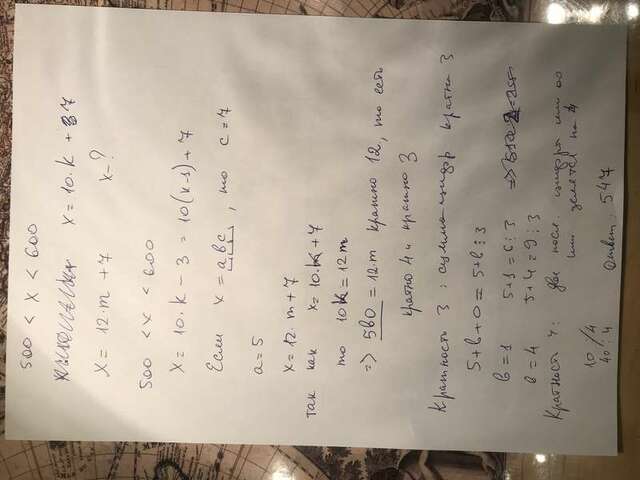 500 < x < 600
x = 10·k + 7
x = 12·m + 7 x - ?
500 < x < 600
x = 10·k - 3 = 10(k-1) + 7
Если x = abc, то c = 7
a = 5
x = 12·m + 7
так как x = 10·k + 7
то 10k = 12m
=> 5b0 = 12·m кратно 12, то есть
кратно 4 и кратно 3
Кратность 3: сумма цифр кратна 3
5 + b + 0 = 5 + b ⋮ 3
b = 1 5 + 1 = 6 ⋮ 3
b = 4 5 + 4 = 9 ⋮ 3
Кратность 4: две посл. цифры или 00
или делятся на 4
10 / 4
40 ⋮ 4 Ответ: 547